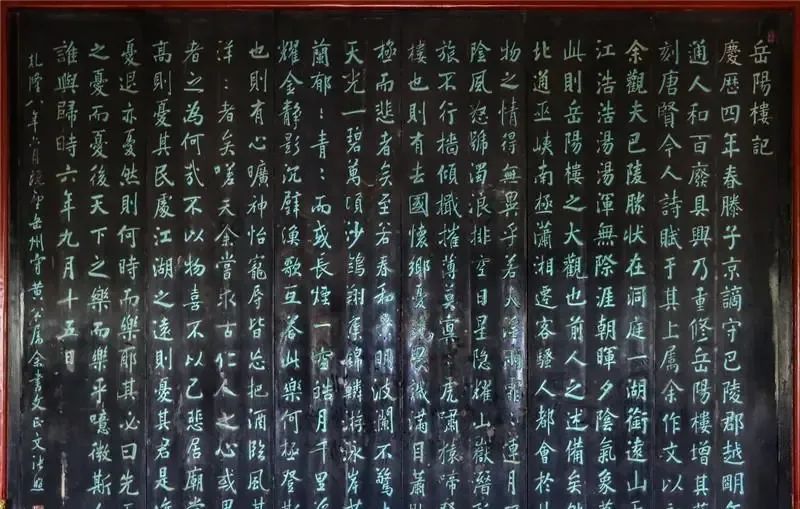 岳陽樓記
慶曆四年春滕子京謫守巴陵郡越朙年
通人和百廢具興乃重修岳陽樓增其舊
刻唐賢今人詩賦于其上屬余作文以
余觀夫巴陵勝狀在洞庭一湖銜遠山
江浩浩湯湯渾無際涯朝暉夕陰氣象
此則岳陽樓之大觀也前人之述備矣然
北通巫峽南極瀟湘遷客騷人都會於
物之情得無異乎若夫淫雨霏:連月
陰風怒號濁浪排空日星隱耀山嶽潛形
旅不行檣傾檝摧薄莫冥:虎嘯猿啼登
樓也則有去國懷鄉憂讒畏譏滿目蕭
極而悲者矣至若春和景明波瀾不驚上
天光一碧萬頃沙鷗翔集錦鱗游泳岸芷
蘭郁:青:而或長煙一空皓月千里浮
耀金靜影沉璧漁歌互答此樂何極登斯
也則有心曠神怡寵辱皆忘把酒臨風其
洋:者矣嗟夫余嘗求古仁人之心或異
者之為何哉不以物喜不以己悲居廟堂
高則憂其民處江湖之遠則憂其君是
憂退亦憂然則何時而樂耶其必曰先
之憂而憂後天下之樂而樂乎噫微斯
誰與歸時六年九月十五日
乾隆八年六月岳州守黃公屬余書文正文張照